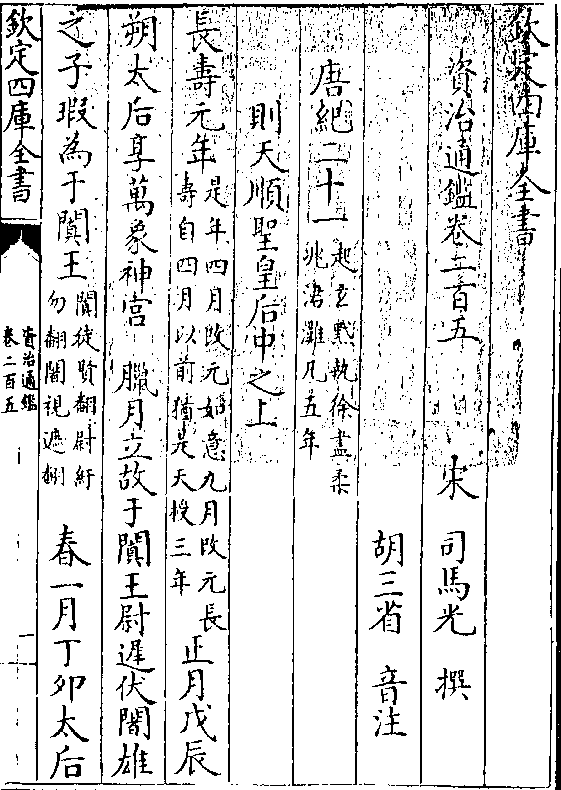 欽定四庫全書
資治通鑑卷二百五
宋 司馬光 撰
胡三省 音注
唐紀二十一
起玄黓執徐盡柔
兆涒灘凡五年
則天順聖皇后中之上
長壽元年
是年四月改元如意九月改元長
壽自四月以前猶是天授三年
正月戊辰
朔太后享萬象神宮 臘月立故于闐王尉遲伏闍雄
之子瑕為于闐王
闐徒賢翻尉紆
勿翻闍視遮翻
春一月丁卯太后
欽定四庫全書
資治通鑑
卷二百五
一